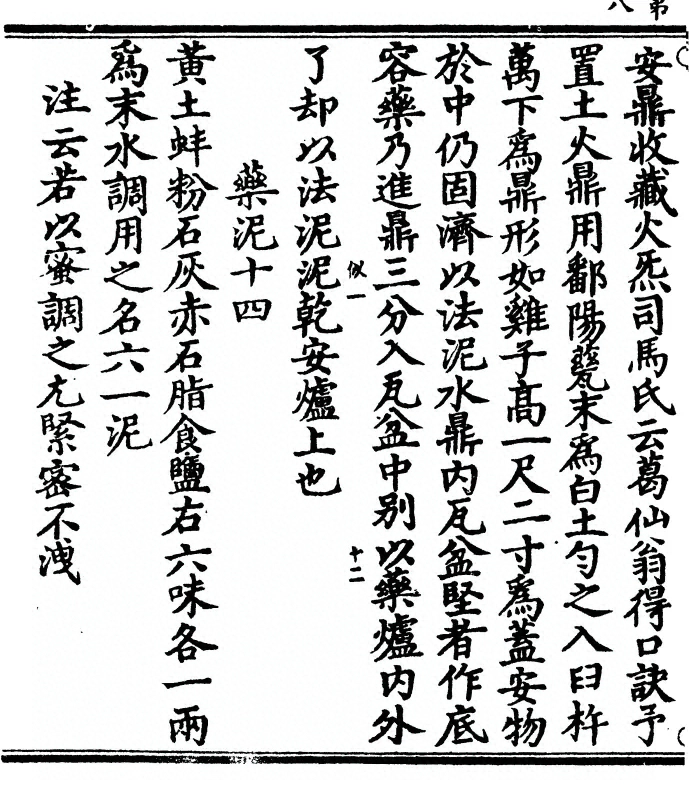 第
八
安鼎收藏火炁司馬氏云葛仙翁得口訣予
置土火鼎用鄱陽甆末爲白土勻之入臼杵
萬下爲鼎形如雞子高一尺二寸爲蓋安物
於中仍固濟以法泥水鼎內瓦盆堅者作底
容藥乃進鼎三分入瓦盆中別以藥爐内外
似一
十二
了却以法泥泥乾安爐上也
藥泥十四
黃土蚌粉石灰赤石脂食鹽右六味各一兩
爲末水調用之名六一泥
注云若以蜜調之尤緊密不洩